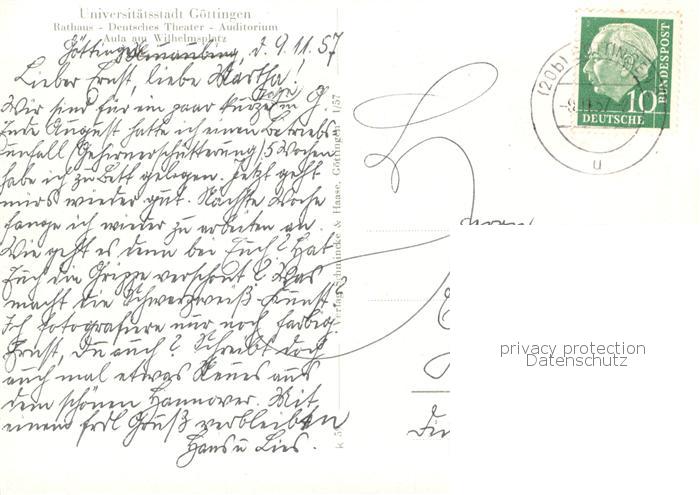 Universitätsstadt Göttingen
Rathaus - Deutsches Theater - Auditorium
Aula am Wilhelmsplatz
Göttingen, d. 9.11.57
Lieber Ernst, liebe Martha!
Wir sind für ein paar Tage in G
Ende August hatte ich einen Betriebs-
unfall Gehirnerschütterung 5 Wochen
habe ich zu Bett gelegen. Jetzt geht
mirs wieder gut. Nächste Woche
fange ich wieder zu arbeiten an.
Wie geht es denn bei Euch? Hat
Euch die Grippe verschont? Was
macht die Schwarzweiß-Kunst?
Ich fotografiere nur noch farbig
Ernst, Du auch? Schreibt doch
auch mal etwas Neues aus
dem schönen Hannover. Mit
einem frdl Gruß verbleiben
Hans u Lies.
Verlag Schmincke & Haase, Göttingen 1/57
(20b) GÖTTINGEN
u
10
DEUTSCHE
BUNDESPOST
privacy protection
Datenschutz